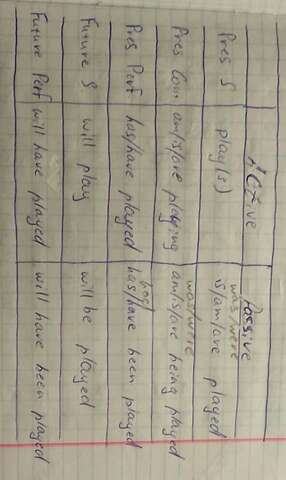 Active Passive
was/were
Pres S play(s) is/am/are played
was/were
Pres Con am/is/are playing am/is/are being played
had
Pres Perf has/have played has/have been played
Future S will play will be played
Future Perf will have played will have been played